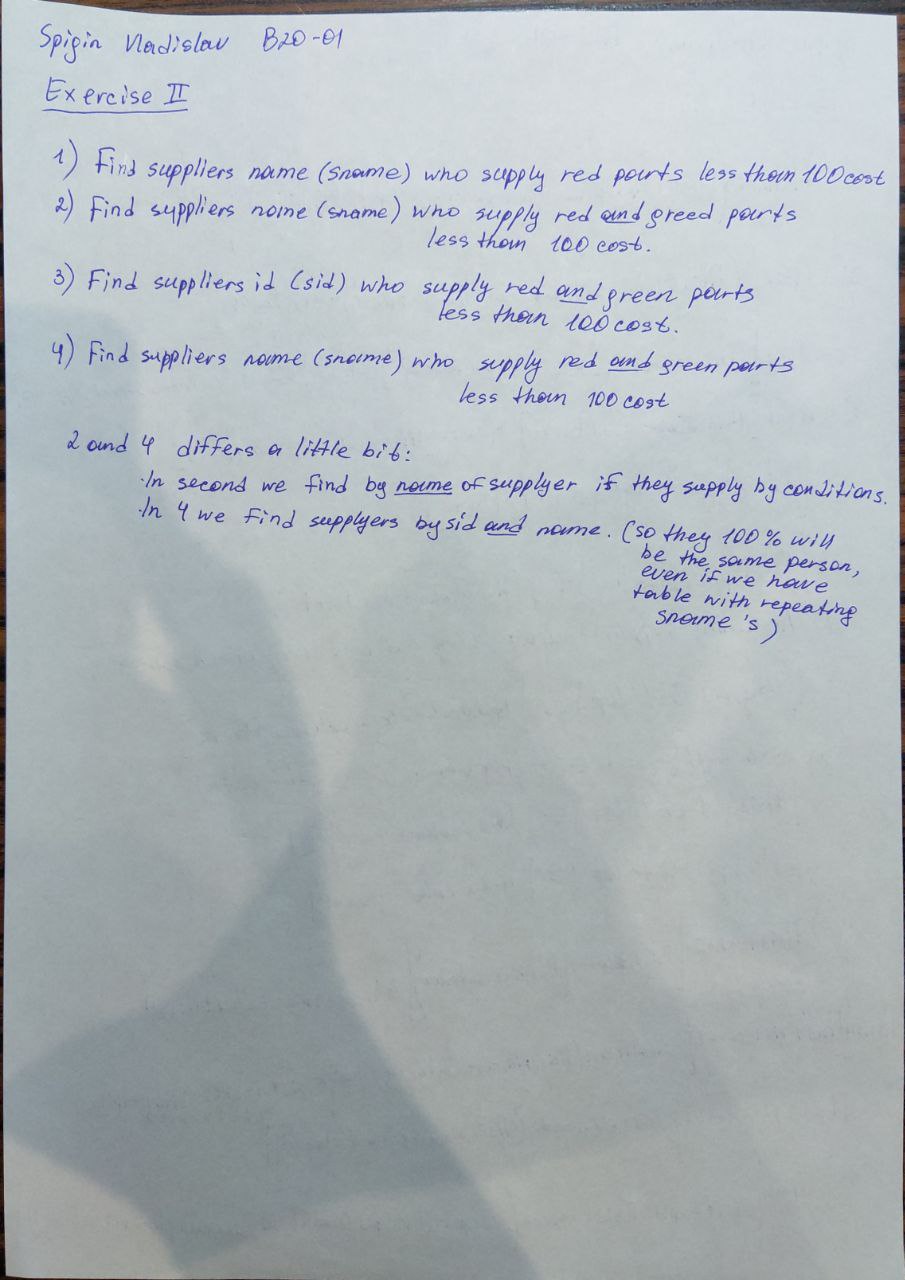 Spigin Vladislav B20-01
Exercise II
1) Find suppliers name (sname) who supply red parts less than 100 cost
2) Find suppliers name (sname) who supply red and greed parts
less than 100 cost.
3) Find suppliers id (sid) who supply red and green parts
less than 100 cost.
4) Find suppliers name (sname) who supply red and green parts
less than 100 cost
2 and 4 differs a little bit:
·In second we find by name of supplyer if they supply by conditions.
·In 4 we find supplyers by sid and name. (so they 100% will
be the same person,
even if we have
table with repeating
sname's)